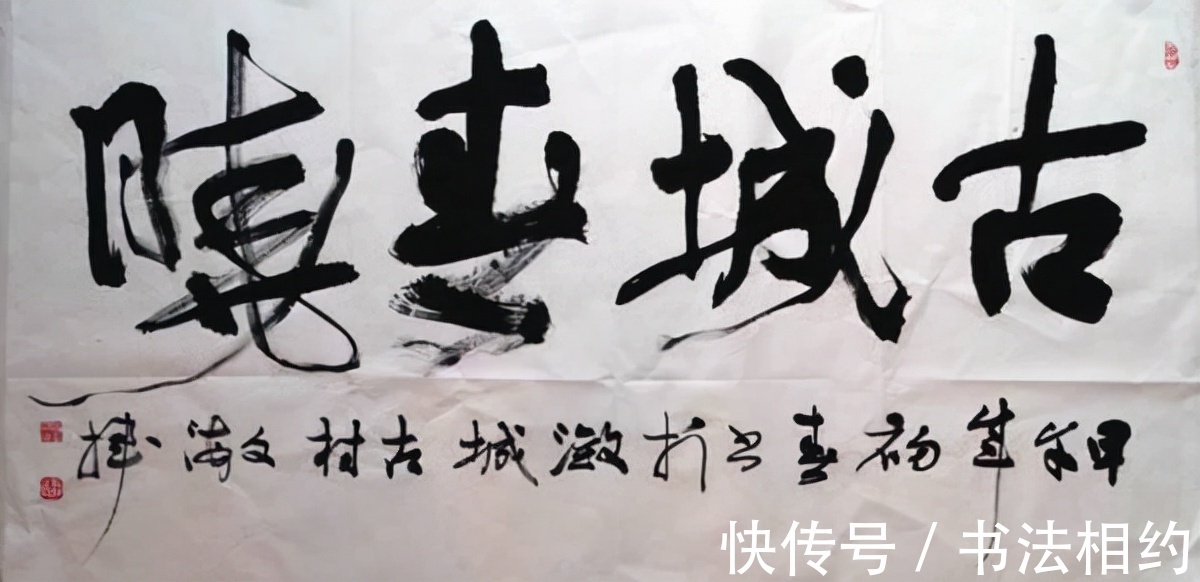 古城春曉
甲午年初春书於澂城古村文海揮
快传号 / 书法相约